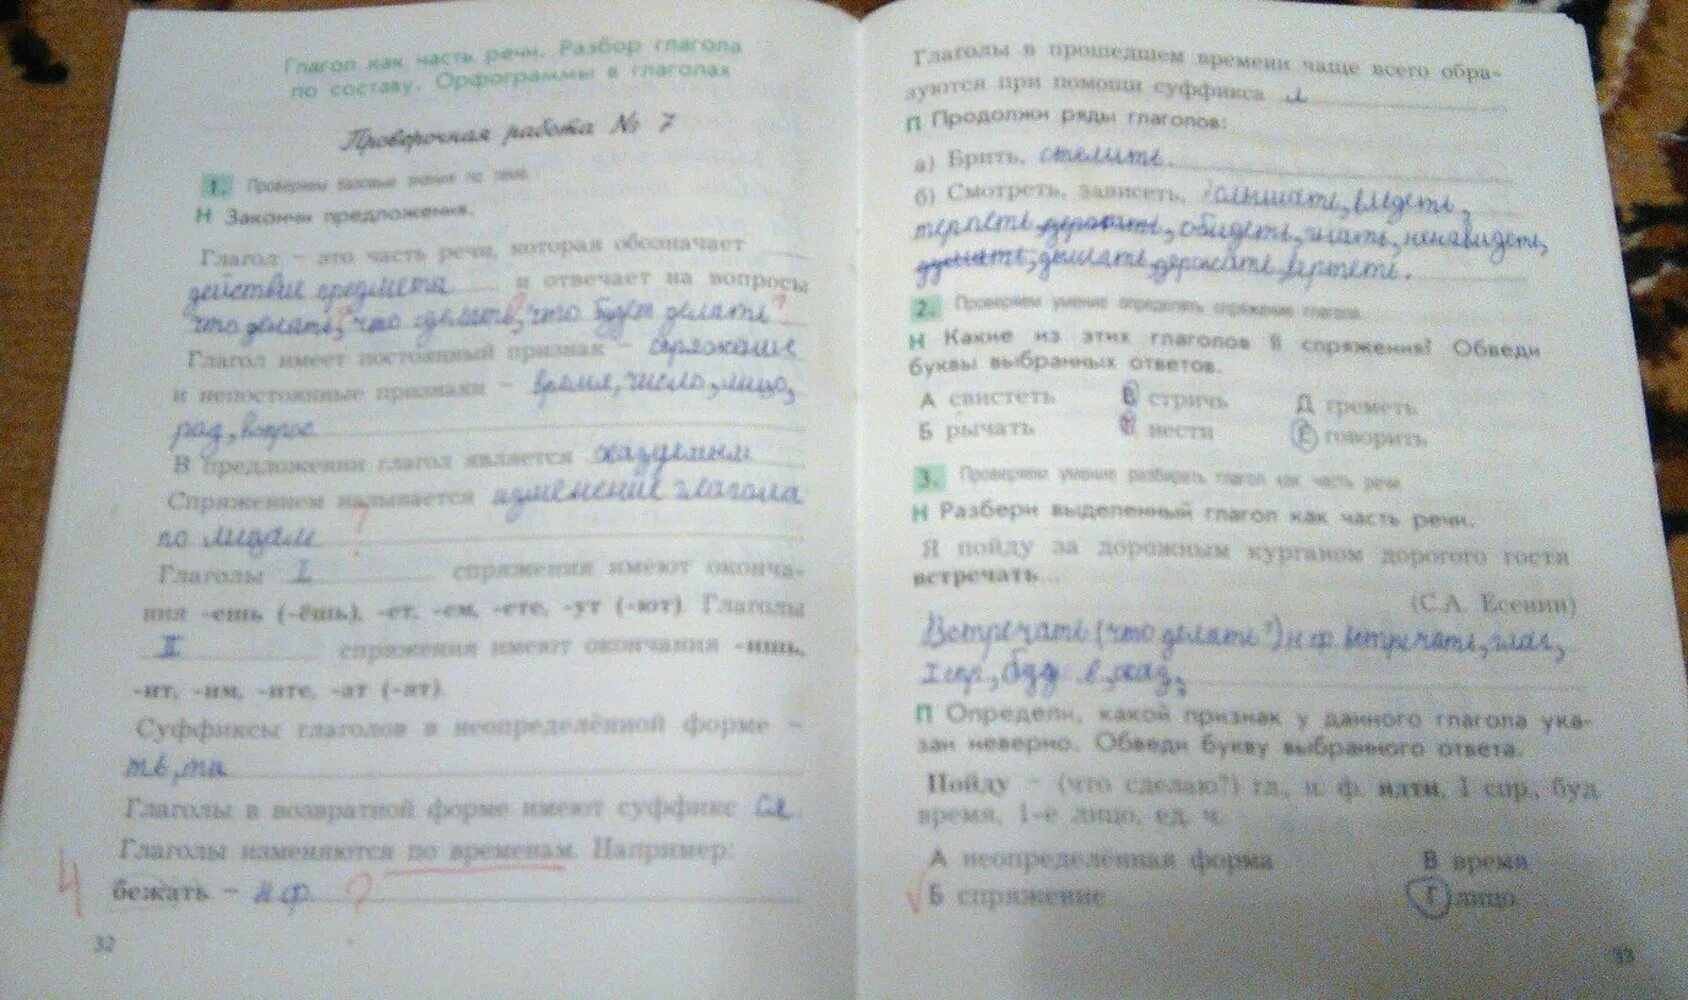 Глагол как часть речи. Разбор глагола
по составу. Орфограммы в глаголах
Проверочная работа № 7
1. Проверяем базовые знания по теме.
Н Закончи предложения.
Глагол – это часть речи, которая обозначает
действие предмета и отвечает на вопросы
что делать? что сделать? что будет делать?
Глагол имеет постоянный признак – спряжение
и непостоянные признаки – время, число, лицо,
род, вопрос
В предложении глагол является сказуемым
Спряжением называется изменение глагола
по лицам ?
Глаголы I спряжения имеют оконча-
ния -ешь (-ёшь), -ет, -ем, -ете, -ут (-ют). Глаголы
II спряжения имеют окончания -ишь,
-ит, -им, -ите, -ат (-ят).
Суффиксы глаголов в неопределённой форме –
ть, ти
Глаголы в возвратной форме имеют суффикс ся
Глаголы изменяются по временам. Например:
4 бежать – н.ф. ?
32
Глаголы в прошедшем времени чаще всего обра-
зуются при помощи суффикса л
П Продолжи ряды глаголов:
а) Брить, стелить.
б) Смотреть, зависеть, слышать, видеть,
терпеть, держать, обидеть, гнать, ненавидеть,
дышать, дышать, держать, вертеть.
2. Проверяем умение определять спряжение глагола.
Н Какие из этих глаголов II спряжения? Обведи
буквы выбранных ответов.
А свистеть В стричь Д греметь
Б рычать Г нести Е говорить
3. Проверяем умение разбирать глагол как часть речи.
Н Разбери выделенный глагол как часть речи.
Я пойду за дорожным курганом дорогого гостя
встречать...
(С.А. Есенин)
Встречать (что делать?) н.ф. встречать, глаг,
I спр, буд в, сказ,
П Определи, какой признак у данного глагола ука-
зан неверно. Обведи букву выбранного ответа.
Пойду – (что сделаю?) гл., н. ф. идти, I спр., буд.
время, 1-е лицо, ед. ч.
А неопределённая форма В время
Б спряжение Г лицо
33